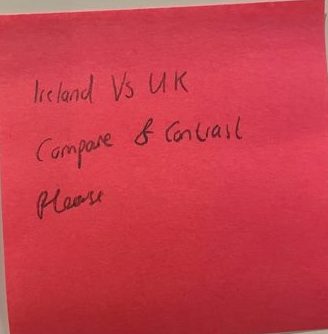 Ireland Vs UK
Compare & Contrast
Please